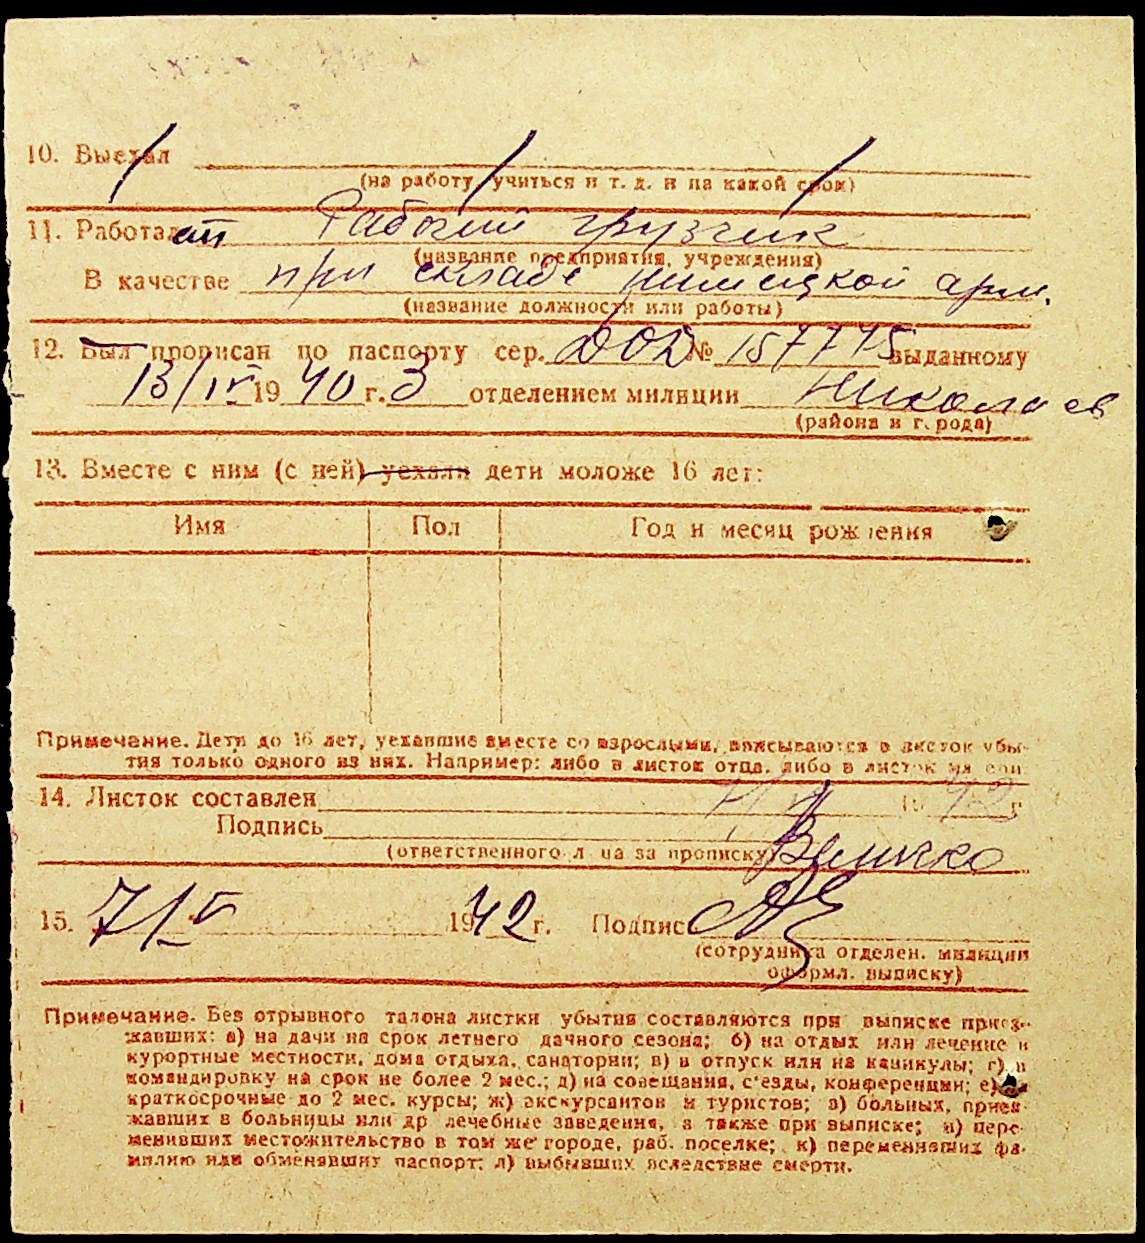 10. Выехал
(на работу, учиться и т. д. и на какой срок)
11. Работает Рабочий грузчик
(название предприятия, учреждения)
В качестве при складе нимецкой арм.
(название должности или работы)
12. Был прописан по паспорту сер. № 157775 выданному
13/IV 1940 г. 3 отделением милиции Николаев
(района и города)
13. Вместе с ним (с ней) уехали дети моложе 16 лет:
Имя Пол Год и месяц рождения
Примечание. Дети до 16 лет, уехавшие вместе со взрослыми, вписываются в листок убы-
тия только одного из них. Например: либо в листок отца, либо в листок матери
14. Листок составлен 1942 г
Подпись
(ответственного лица за прописку)
15. 7/V 1942 г. Подпись
(сотрудника отделен. милиции
оформл. выписку)
Примечание. Без отрывного талона листки убытия составляются при выписке приез-
жавших: а) на дачи на срок летнего дачного сезона; б) на отдых или лечение в
курортные местности, дома отдыха, санатории; в) в отпуск или на каникулы; г) в
командировку на срок не более 2 мес.; д) на совещания, с'езды, конференции; е) на
краткосрочные до 2 мес. курсы; ж) экскурсантов и туристов; з) больных, приез-
жавших в больницы или др лечебные заведения, а также при выписке; и) пере-
менивших местожительство в том же городе, раб. поселке; к) переменивших фа-
милию или обменявших паспорт; л) выбывших вследствие смерти.